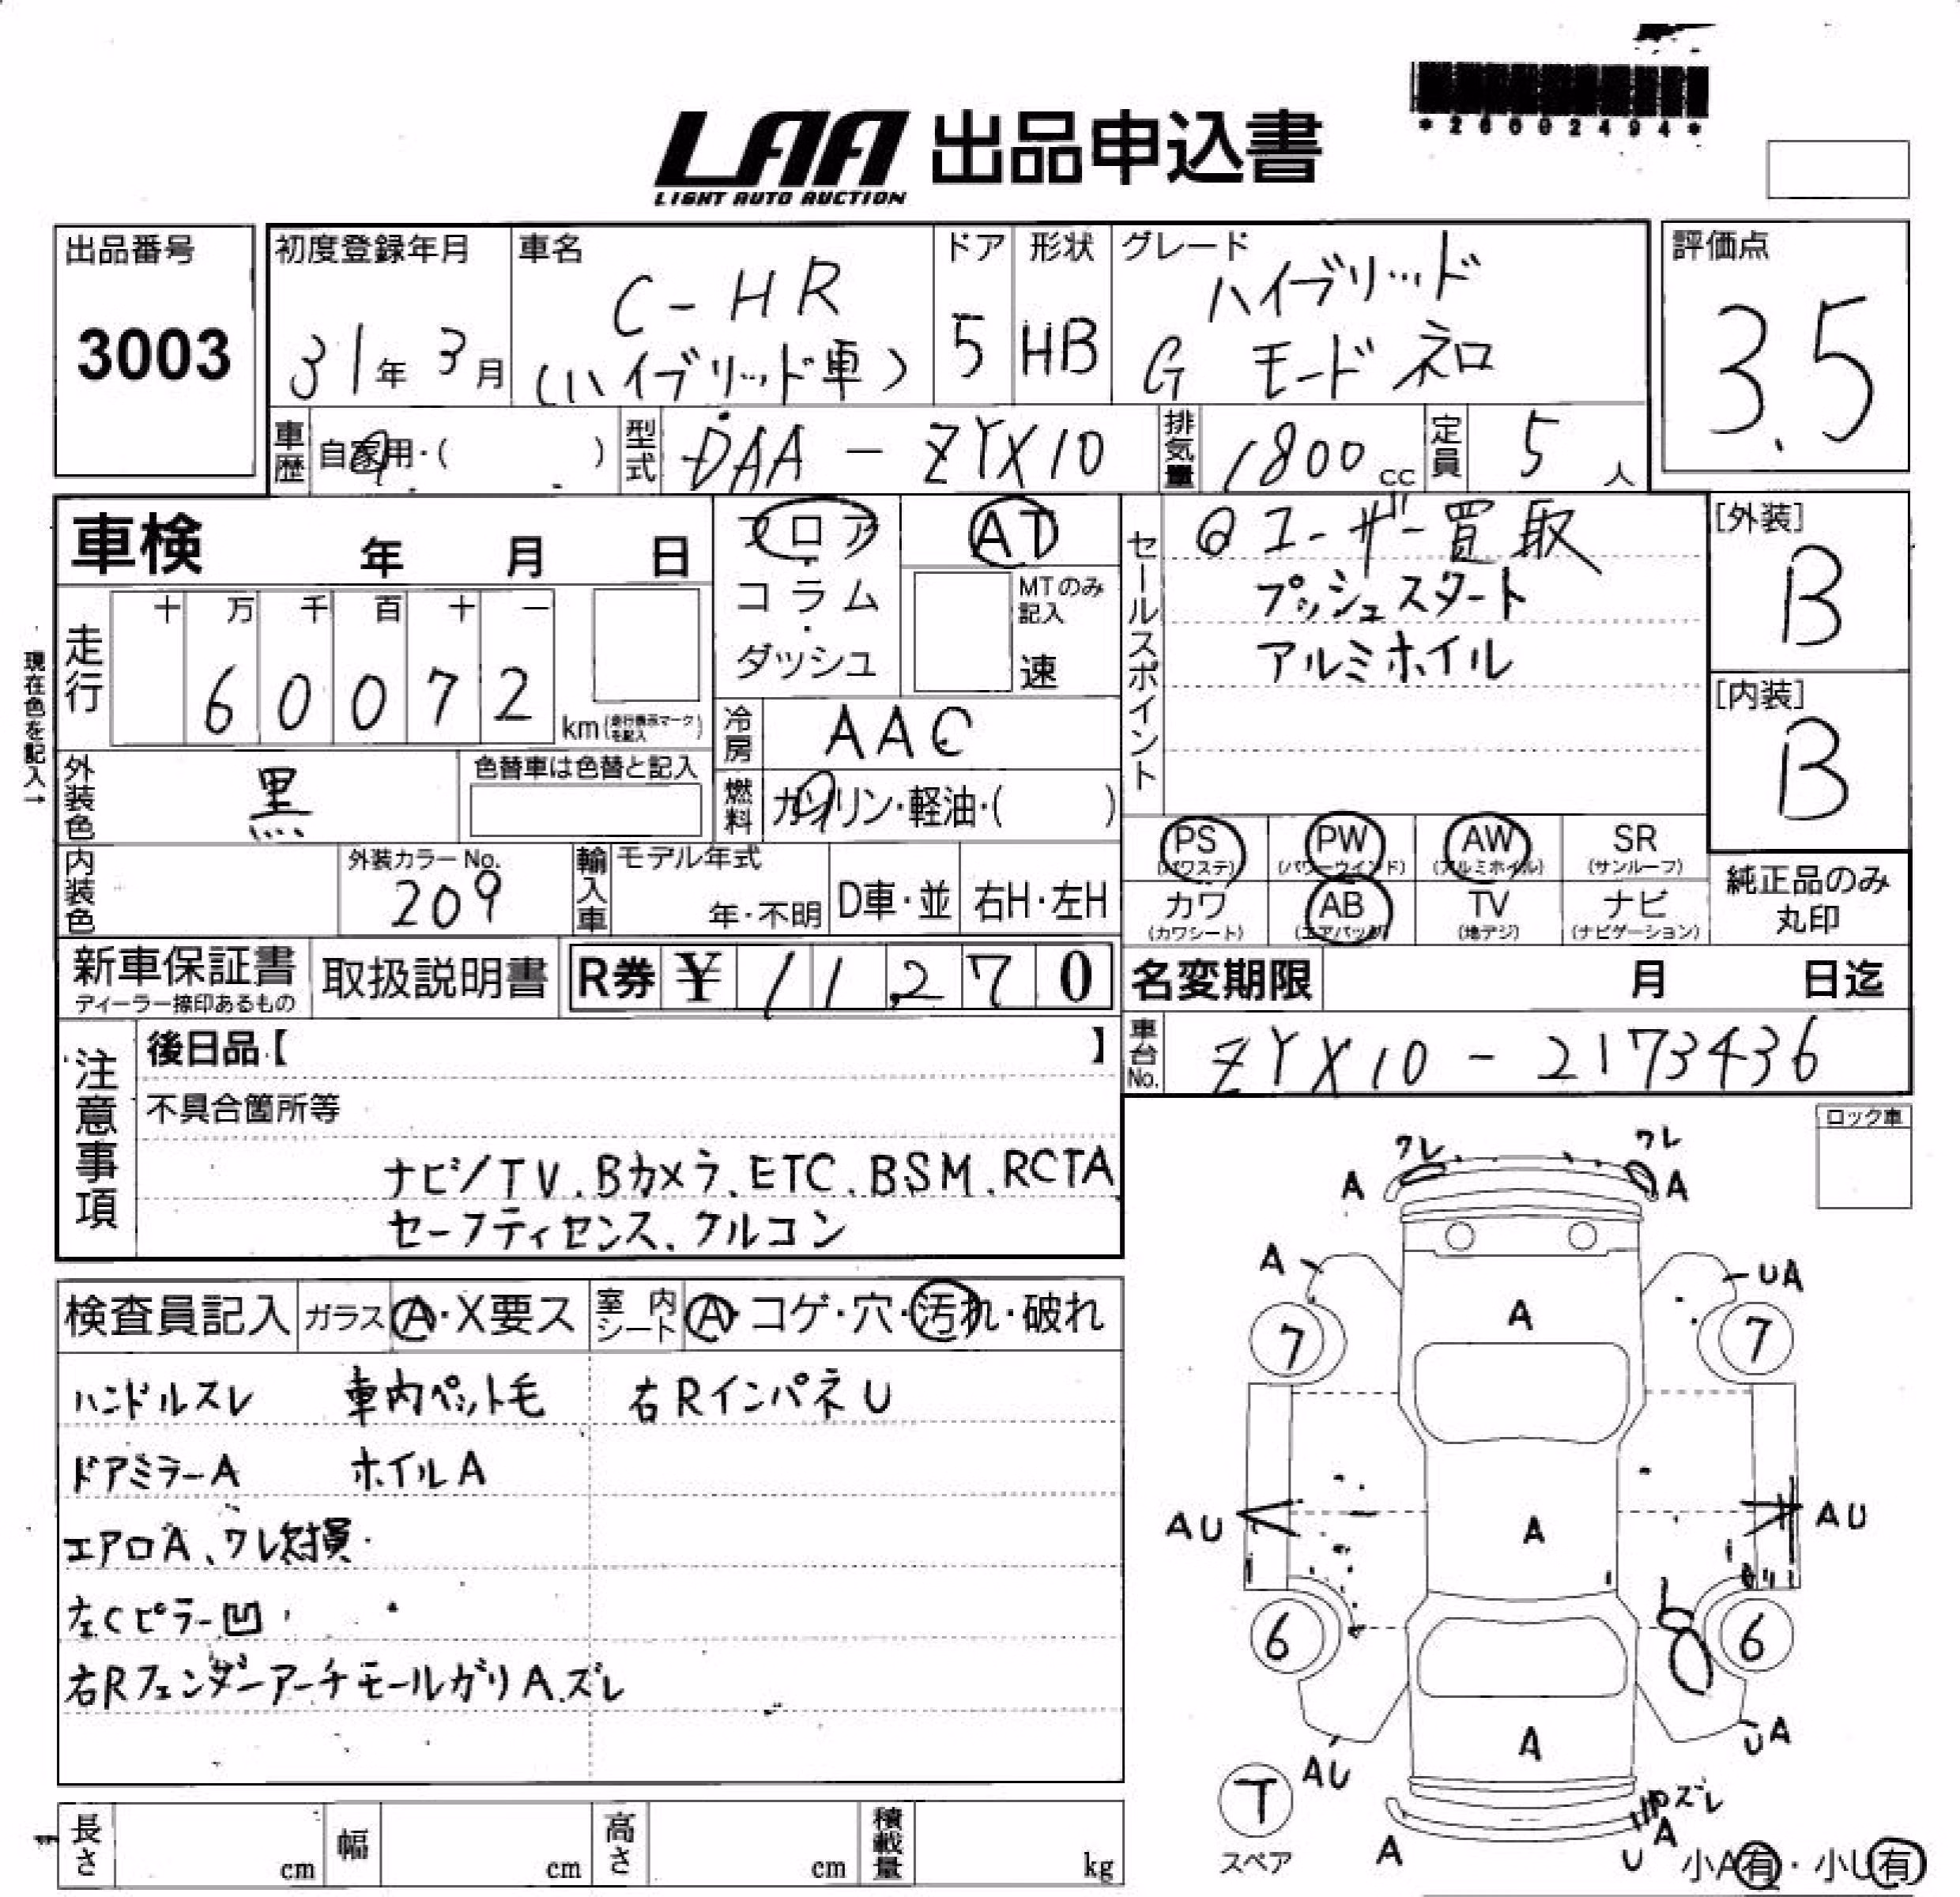 *26002494*
LAA 出品申込書
LIGHT AUTO AUCTION
出品番号
3003
初度登録年月
31年 3月
車名
C-HR
(ハイブリッド車)
ドア
5
形状
HB
グレード
ハイブリッド
G モードネロ
評価点
3.5
車歴
自家用・( )
型式
DAA-ZYX10
排気量
1800cc
定員
5人
車検 年 月 日
フロア・コラム・ダッシュ
AT
MTのみ記入
速
セールスポイント
@ユーザー買取
プッシュスタート
アルミホイル
[外装]
B
[内装]
B
現在色を記入→
走行
十 万 千 百 十 一
6 0 0 7 2
km(走行換示マークを記入)
冷房
AAC
外装色
黒
色替車は色替と記入
燃料
ガソリン・軽油・( )
内装色
外装カラーNo.
209
輸入車
モデル年式
年・不明
D車・並
右H・左H
PS (パワステ)
PW (パワーウインド)
AW (アルミホイル)
SR (サンルーフ)
カワ (カワシート)
AB (エアバッグ)
TV (地デジ)
ナビ (ナビゲーション)
純正品のみ
丸印
新車保証書
ディーラー捺印あるもの
取扱説明書
R券 ¥ 11,270
名変期限 月 日迄
車台No.
ZYX10-2173436
注意事項
後日品【 】
不具合箇所等
ナビ/TV、Bカメラ、ETC、BSM、RCTA
セーフティセンス、クルコン
ロック車
検査員記入
ガラス A・X要ス
室内シート A・コゲ・穴・汚れ・破れ
ハンドルスレ 車内ペット毛 右RインパネU
ドアミラーA ホイルA
エアロA、ワレ欠損
左Cピラー凹
右RフェンダーアーチモールガリA、ズレ
ワレ ワレ
A A
A UA
A
7 7
AU AU
A
6 6
A
AU UA
T
スペア
ズレ
A A
U
小A有・小U有
長さ cm
幅 cm
高さ cm
積載量 kg